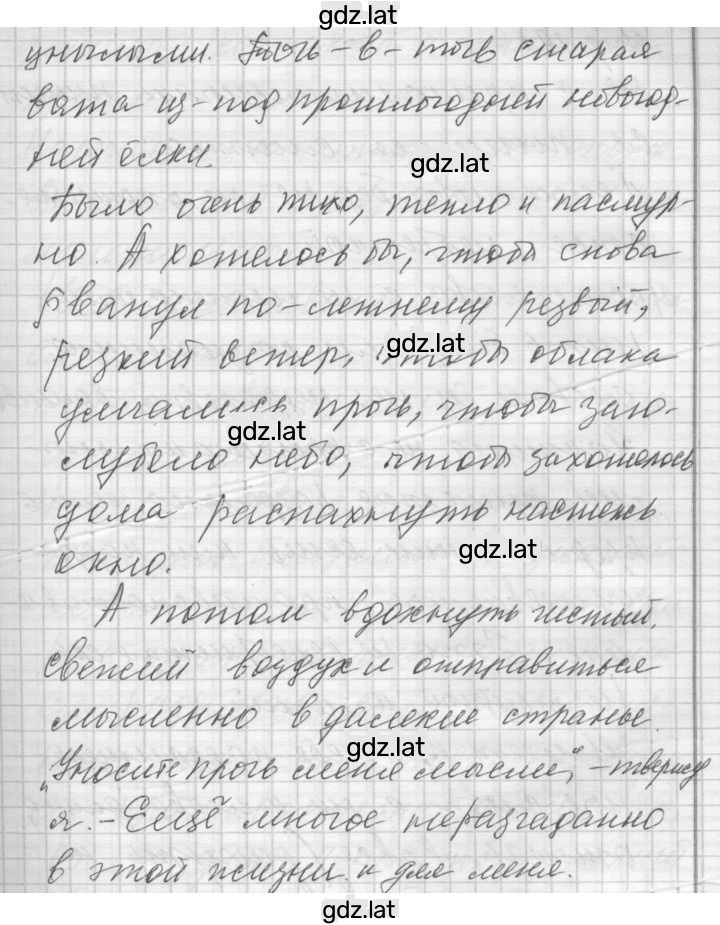 gdz.lat
унылыми. Точь-в-точь старая
вата из-под прошлогодней новогод-
ней ёлки.
gdz.lat
Было очень тихо, тепло и пасмур-
но. А хотелось бы, чтобы снова
рванул по-летнему резвый,
резкий ветер, чтобы облака
gdz.lat
умчались прочь, чтобы заго-
gdz.lat
лубело небо, чтобы захотелось
дома распахнуть настежь
gdz.lat
окно.
А потом вдохнуть чистый,
свежий воздух и отправиться
мысленно в далекие страны.
gdz.lat
„Уносите прочь меня мысли", - твержу
я. - Ещё многое неразгаданно
в этой жизни и для меня.
gdz.lat